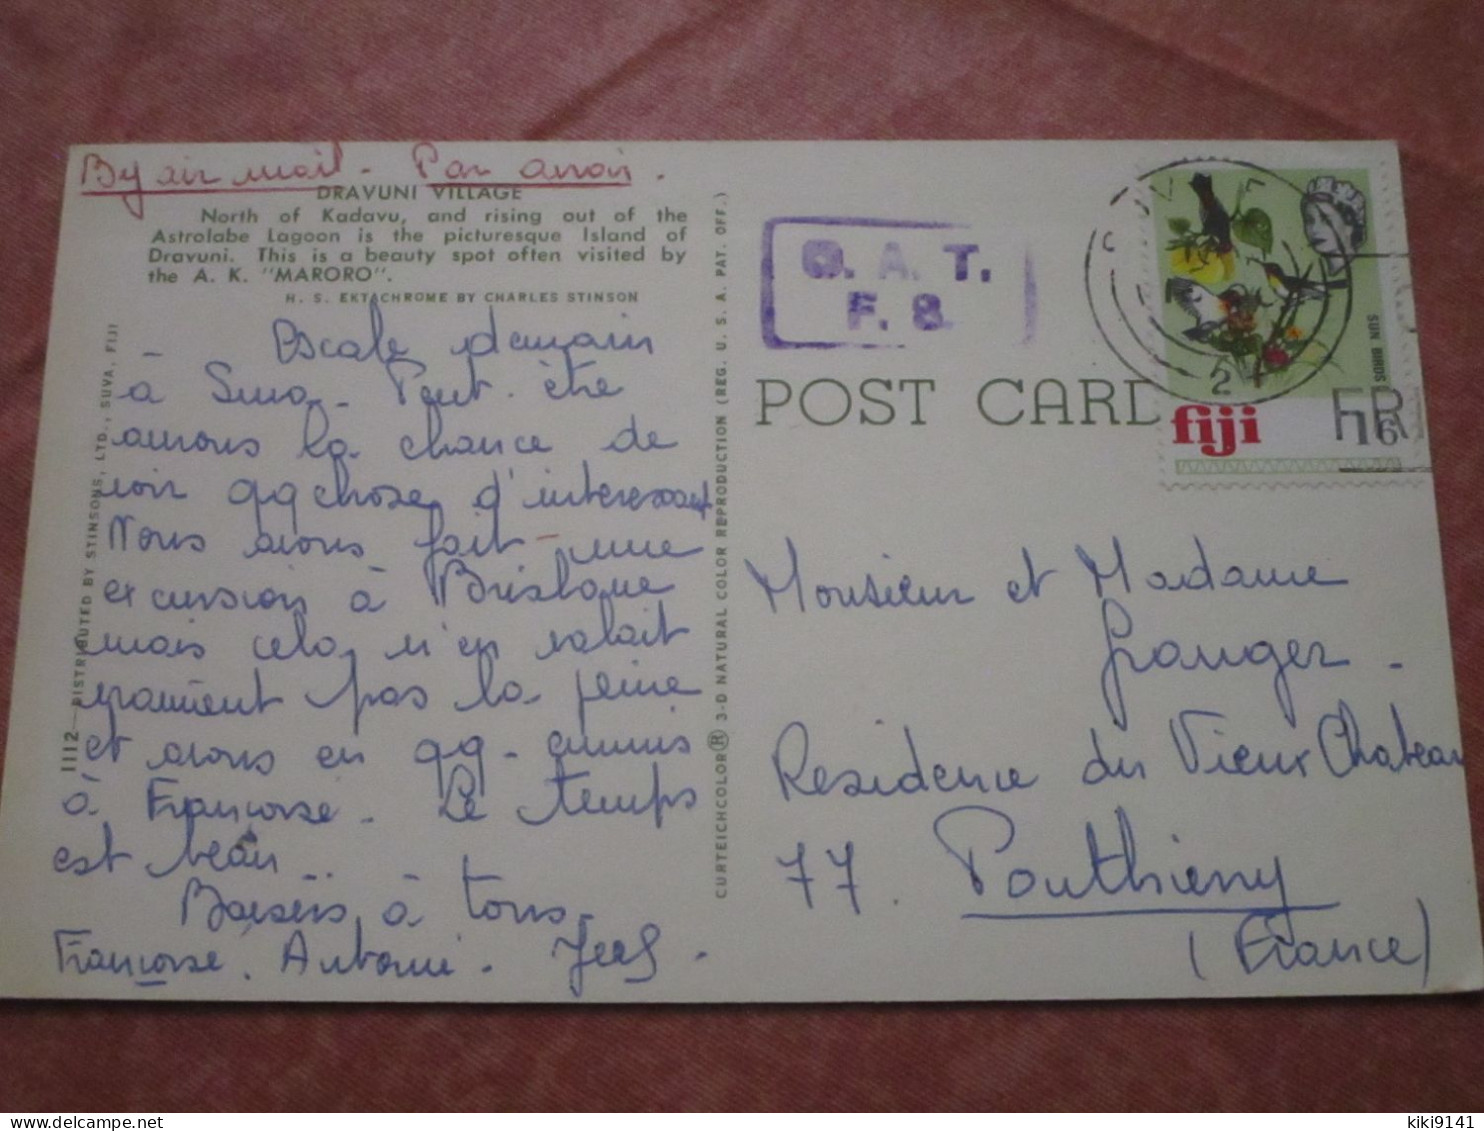 By air mail - Par avion.
DRAVUNI VILLAGE
North of Kadavu, and rising out of the
Astrolabe Lagoon is the picturesque Island of
Dravuni. This is a beauty spot often visited by
the A. K. "MARORO".
H. S. EKTACHROME BY CHARLES STINSON
Escale demain
à Suva. Peut être
aurons la chance de
voir qq chose d'interessant
Nous avons fait une
excursion à Brisbane
mais cela n'en valait
vraiment pas la peine
et avons en qq - ennuis
à Françoise. Le temps
est beau..
Baisers à tous.
Françoise. Antoine.
1112—DISTRIBUTED BY STINSONS, LTD., SUVA, FIJI
CURTEICHCOLOR® 3-D NATURAL COLOR REPRODUCTION (REG. U. S. A. PAT. OFF.)
O. A. T.
F. 8
POST CARD
SUN BIRDS
fiji
1/6
Monsieur et Madame
Granger -
Residence du Vieux Chateau
77. Pouthierry
(France)
kiki9141